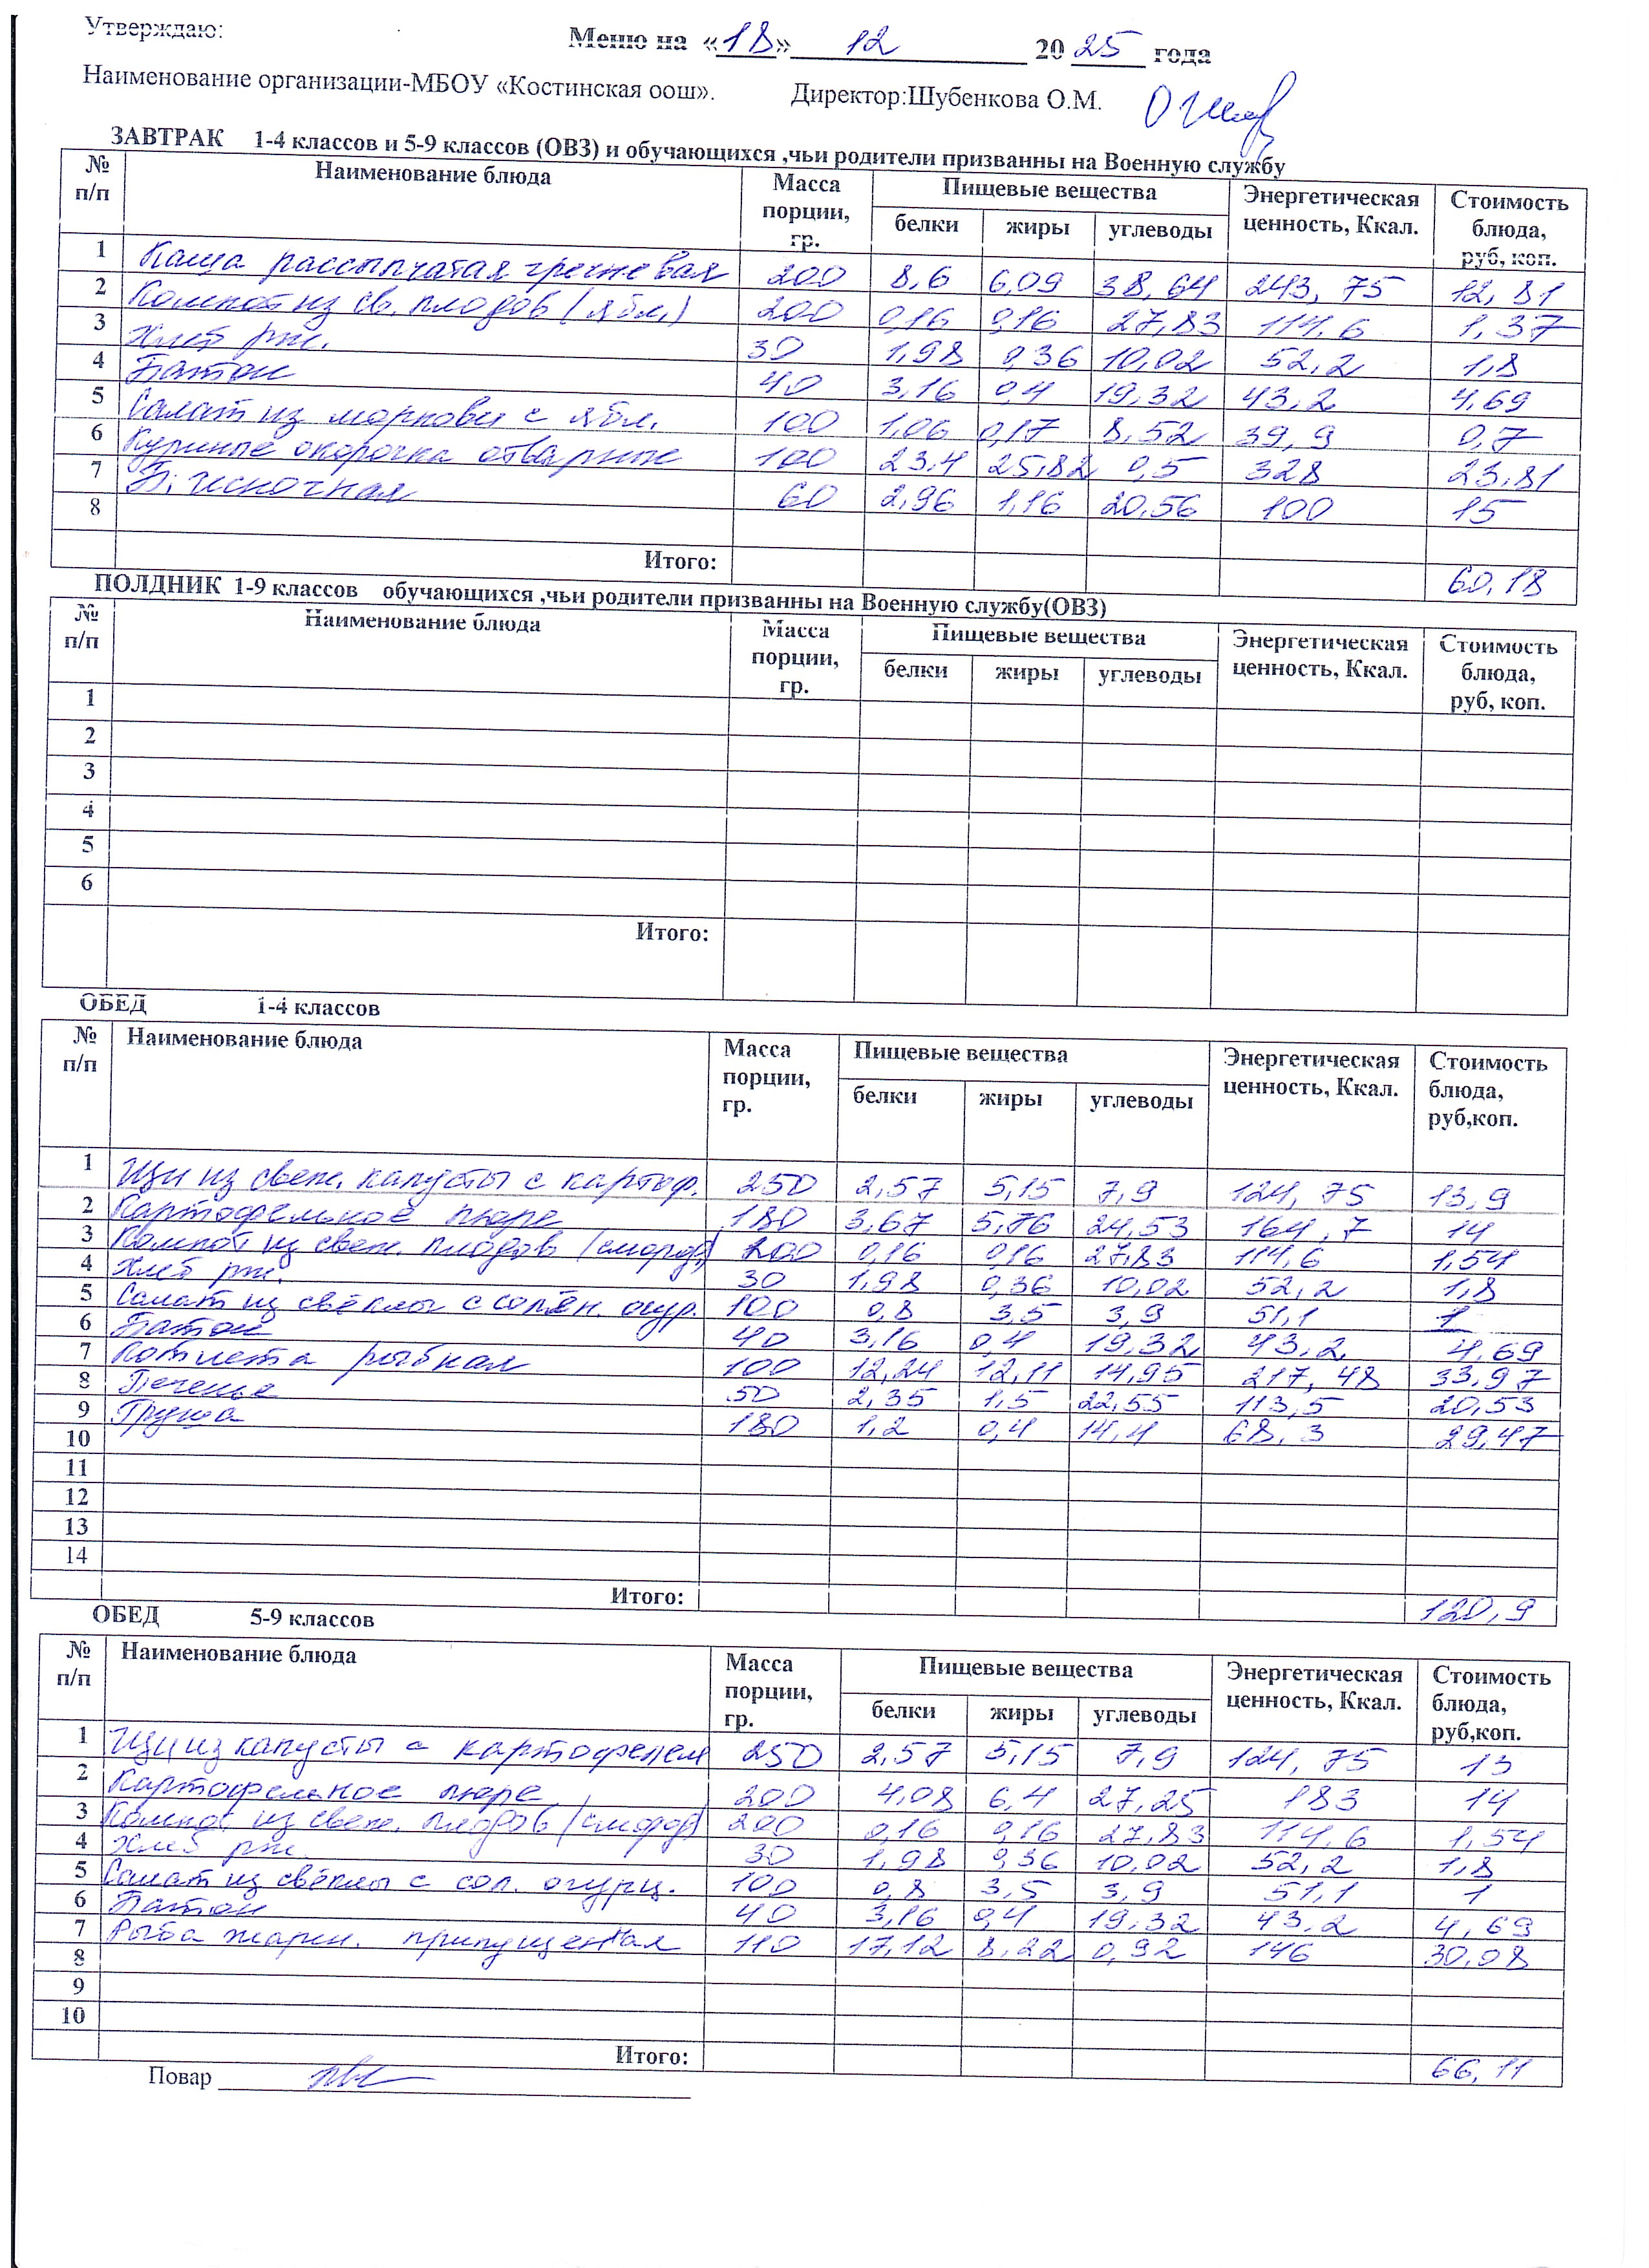 Утверждаю:
Меню на «18» 12 2025 года
Наименование организации-МБОУ «Костинская оош». Директор:Шубенкова О.М.
ЗАВТРАК 1-4 классов и 5-9 классов (ОВЗ) и обучающихся ,чьи родители призванны на Военную службу
№ п/п Наименование блюда Масса порции, гр. Пищевые вещества Энергетическая ценность, Ккал. Стоимость блюда, руб, коп.
белки жиры углеводы
1 Каша рассыпчатая гречневая 200 8,6 6,09 38,64 243,75 12,81
2 Компот из св. плодов (ябл.) 200 0,16 0,16 27,83 114,6 1,37
3 Хлеб рж. 30 1,98 0,36 10,02 52,2 1,8
4 Батон 40 3,16 0,4 19,32 43,2 4,69
5 Салат из моркови с ябл. 100 1,06 0,17 8,52 39,9 0,7
6 Куриные окорочка отварные 100 23,4 25,82 0,5 328 23,81
7 Б. чесночная 60 2,96 1,16 20,56 100 15
8
Итого: 60,18
ПОЛДНИК 1-9 классов обучающихся ,чьи родители призванны на Военную службу(ОВЗ)
№ п/п Наименование блюда Масса порции, гр. Пищевые вещества Энергетическая ценность, Ккал. Стоимость блюда, руб, коп.
белки жиры углеводы
1
2
3
4
5
6
Итого:
ОБЕД 1-4 классов
№ п/п Наименование блюда Масса порции, гр. Пищевые вещества Энергетическая ценность, Ккал. Стоимость блюда, руб,коп.
белки жиры углеводы
1 Щи из свеж. капусты с картоф. 250 2,57 5,15 7,9 124,75 13,9
2 Картофельное пюре 180 3,67 5,76 24,53 164,7 14
3 Компот из свеж. плодов (смород) 200 0,16 0,16 27,83 114,6 1,54
4 Хлеб рж. 30 1,98 0,36 10,02 52,2 1,8
5 Салат из свёклы с солён. огур. 100 0,8 3,5 3,9 51,1 1
6 Батон 40 3,16 0,4 19,32 43,2 4,69
7 Котлета рыбная 100 12,24 12,11 14,95 217,48 33,97
8 Печенье 50 2,35 1,5 22,55 113,5 20,53
9 Груша 180 1,2 0,4 14,4 68,3 29,47
10
11
12
13
14
Итого: 120,9
ОБЕД 5-9 классов
№ п/п Наименование блюда Масса порции, гр. Пищевые вещества Энергетическая ценность, Ккал. Стоимость блюда, руб,коп.
белки жиры углеводы
1 Щи из капусты с картофелем 250 2,57 5,15 7,9 124,75 13
2 Картофельное пюре 200 4,08 6,4 27,25 183 14
3 Компот из свеж. плодов (смород) 200 0,16 0,16 27,83 114,6 1,54
4 Хлеб рж. 30 1,98 0,36 10,02 52,2 1,8
5 Салат из свёклы с сол. огурц. 100 0,8 3,5 3,9 51,1 1
6 Батон 40 3,16 0,4 19,32 43,2 4,69
7 Рыба жарен. припущенная 110 17,12 8,22 0,92 146 30,08
8
9
10
Итого: 66,11
Повар